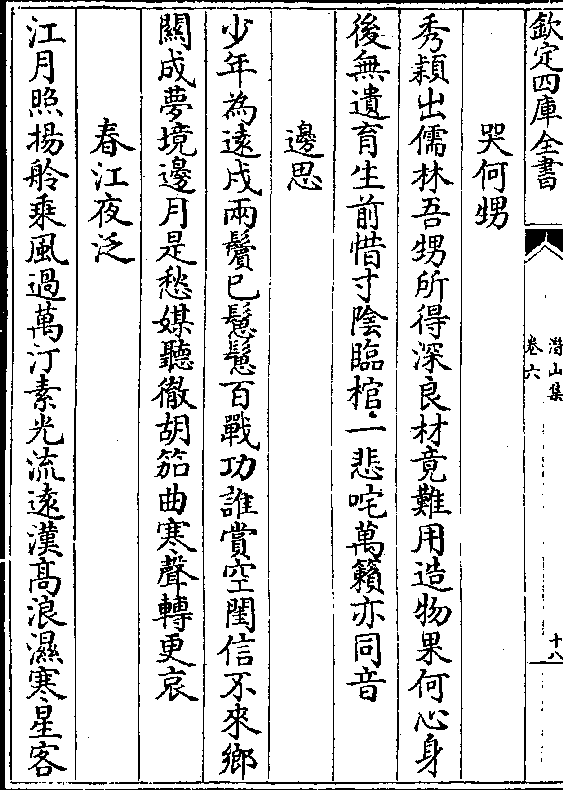 欽定四庫全書
潛山集
卷六
十八
哭何甥
秀穎出儒林吾甥所得深良材竟難用造物果何心身
後無遺育生前惜寸陰臨棺一悲咤萬籟亦同音
邊思
少年為遠戍兩鬢已鬖鬖百戰功誰賞空閨信不來鄉
關成夢境邊月是愁媒聽徹胡笳曲寒聲轉更哀
春江夜泛
江月照揚舲乘風過萬汀素光流遠漢高浪濕寒星客